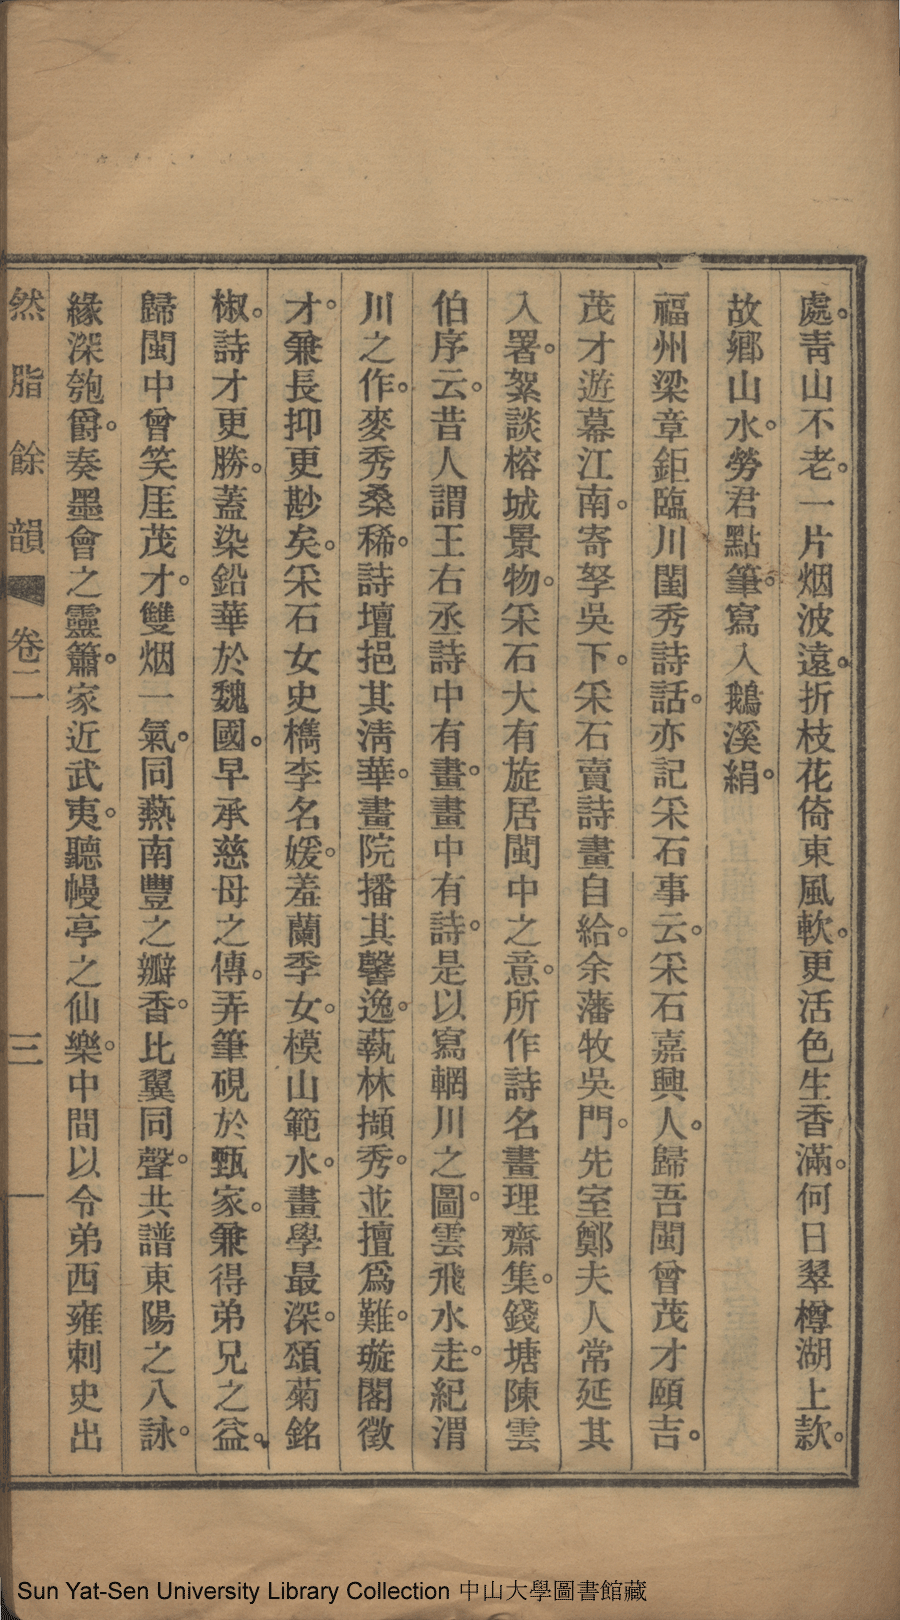 處。青山不老。一片烟波遠。折枝花倚東風軟。更活色生香滿。何日翠樽湖上款。
故鄉山水。勞君點筆。寫入鵝溪絹。
福州梁章鉅臨川閨秀詩話。亦記采石事云。采石嘉興人。歸吾閩曾茂才頤吉。
茂才遊幕江南。寄孥吳下。采石賣詩畫自給。余藩牧吳門。先室鄭夫人常延其
入署。絮談榕城景物。采石大有旋居閩中之意。所作詩名畫理齋集。錢塘陳雲
伯序云。昔人謂王右丞詩中有畫。畫中有詩。是以寫輞川之圖。雲飛水走。紀渭
川之作。麥秀桑稀。詩壇挹其淸華。畫院播其馨逸。蓺林擷秀。並擅爲難。璇閣徵
才。兼長抑更尠矣。采石女史檇李名媛。羞蘭季女。模山範水。畫學最深。頌菊銘
椒。詩才更勝。蓋染鉛華於魏國。早承慈母之傳。弄筆硯於甄家。兼得弟兄之益。
歸閩中曾笑厓茂才。雙烟一氣。同爇南豐之瓣香。比翼同聲。共譜東陽之八詠。
緣深匏爵。奏墨會之靈簫。家近武夷。聽幔亭之仙樂。中間以令弟西雍刺史出
然脂餘韻 卷二 三一
Sun Yat-Sen University Library Collection 中山大學圖書館藏